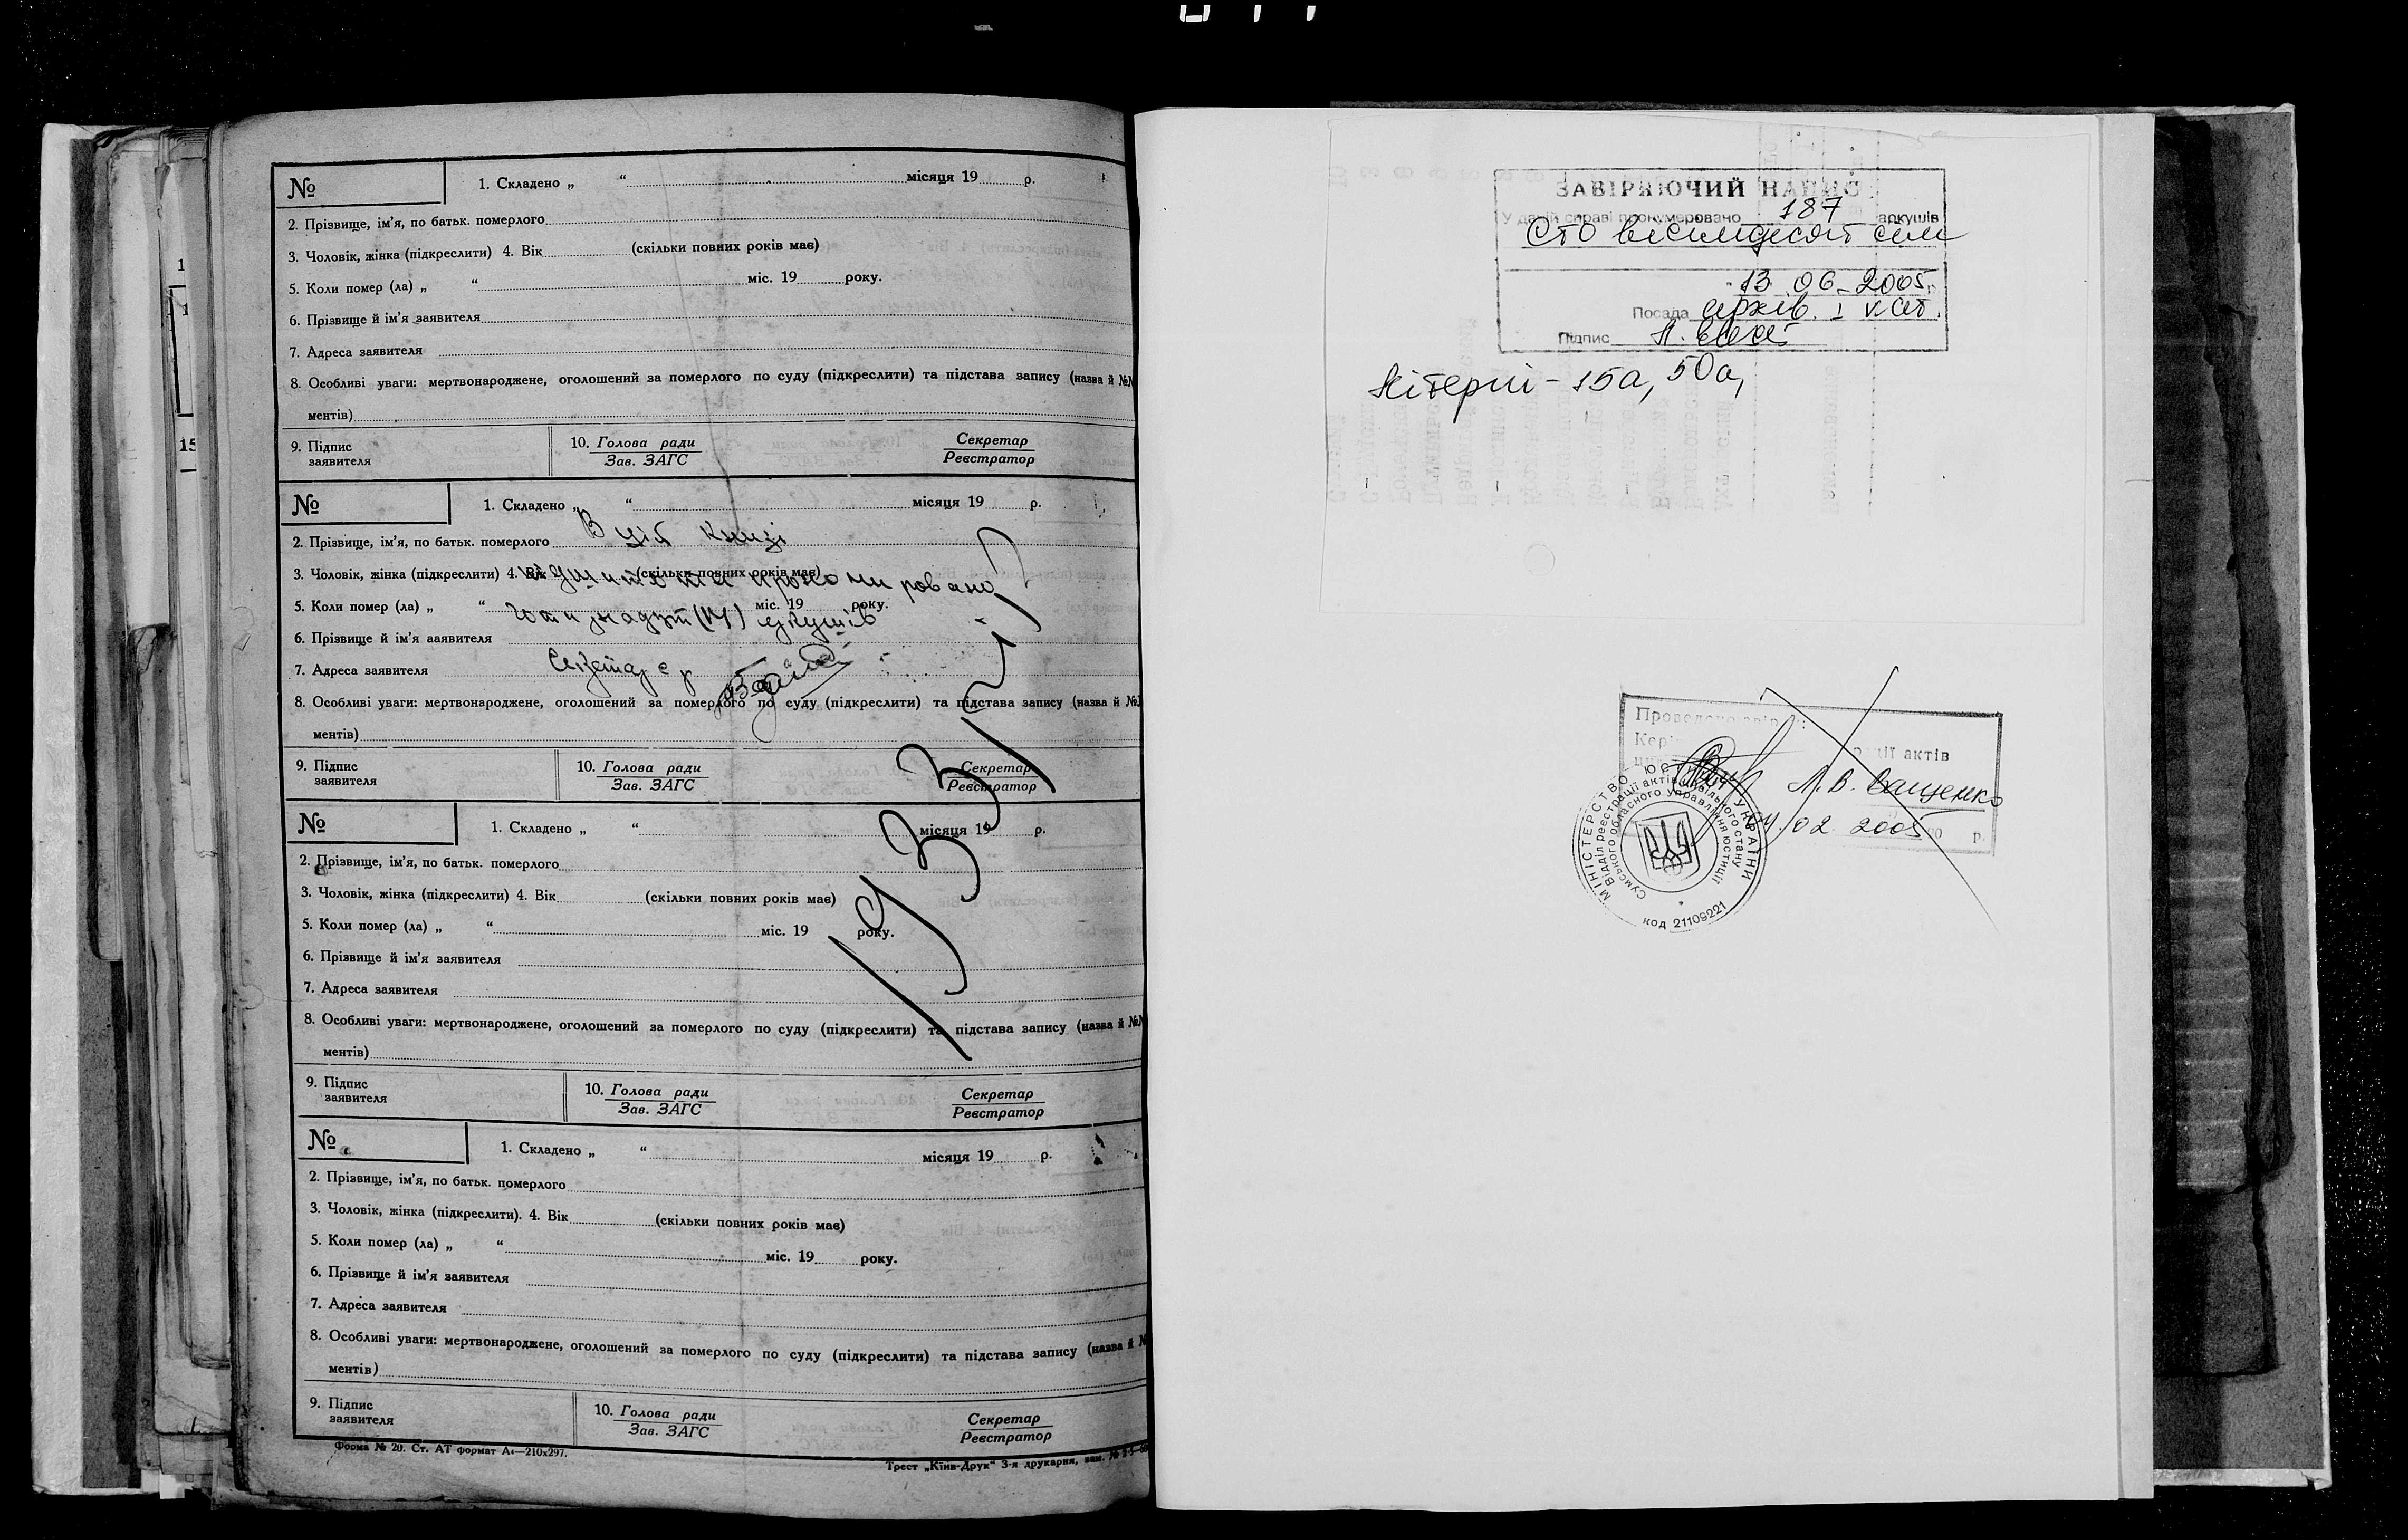 №
1. Складено „ “ місяця 19 р.
2. Прізвище, ім’я, по батьк. померлого
3. Чоловік, жінка (підкреслити) 4. Вік (скільки повних років має)
5. Коли помер (ла) „ “ міс. 19 року.
6. Прізвище й ім’я заявителя
7. Адреса заявителя
8. Особливі уваги: мертвонароджене, оголошений за померлого по суду (підкреслити) та підстава запису (назва й №№
ментів)
9. Підпис
заявителя
10. Голова ради
Зав. ЗАГС
Секретар
Реєстратор
№
1. Складено „ “ місяця 19 р.
2. Прізвище, ім’я, по батьк. померлого
В цій книзі
3. Чоловік, жінка (підкреслити) 4. Вік (скільки повних років має)
5. Коли помер (ла) „ “ міс. 19 року.
аркушів
6. Прізвище й ім’я ааявителя
7. Адреса заявителя
8. Особливі уваги: мертвонароджене, оголошений за померлого по суду (підкреслити) та підстава запису (назва й №
ментів)
9. Підпис
заявителя
10. Голова ради
Зав. ЗАГС
Секретар
Реєстратор
1933
№
1. Складено „ “ місяця 19 р.
2. Прізвище, ім’я, по батьк. померлого
3. Чоловік, жінка (підкреслити) 4. Вік (скільки повних років має)
5. Коли помер (ла) „ “ міс. 19 року.
6. Прізвище й ім’я заявителя
7. Адреса заявителя
8. Особливі уваги: мертвонароджене, оголошений за померлого по суду (підкреслити) та підстава запису (назва й №№
ментів)
9. Підпис
заявителя
10. Голова ради
Зав. ЗАГС
Секретар
Реєстратор
№
1. Складено „ “ місяця 19 р.
2. Прізвище, ім’я, по батьк. померлого
3. Чоловік, жінка (підкреслити). 4. Вік (скільки повних років має)
5. Коли помер (ла) „ “ міс. 19 року.
6. Прізвище й ім’я заявителя
7. Адреса заявителя
8. Особливі уваги: мертвонароджене, оголошений за померлого по суду (підкреслити) та підстава запису (назва й №
ментів)
9. Підпис
заявителя
10. Голова ради
Зав. ЗАГС
Секретар
Реєстратор
Форма № 20. Ст. АТ формат А4—210х297.
Трест „Київ-Друк“ 3-я друкарня, зам. №
ЗАВІРЯЮЧИЙ НАПИС
У даній справі пронумеровано 187 аркушів
Сто вісімдесят сім
13.06-2005р
Посада архів. I кат.
Підпис
Літерні - 15а, 50а,
Проведено звір
Кері ції актів
Л.В. Ващенко
02 2005 р.
МІНІСТЕРСТВО ЮСТИЦІЇ УКРАЇНИ
Відділ реєстрації актів цивільного стану
Сумського обласного управління юстиції
код 21109221